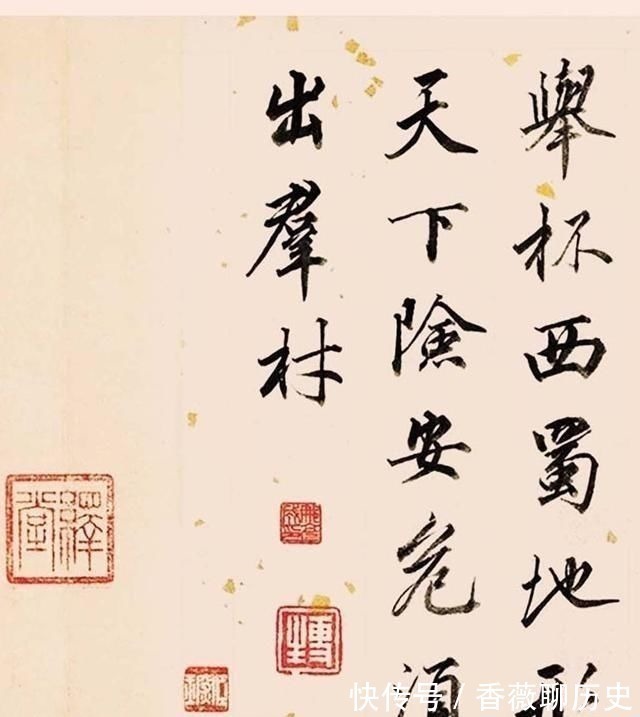 舉杯西蜀地形
天下險安危須
出羣材
快传号 / 香薇聊历史